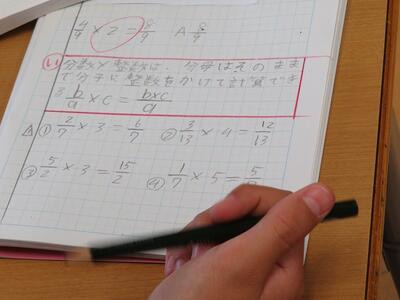 4/9 × 2 = 8/9 A 8/9
分数×整数は、分母はそのまま
で分子に整数をかけて計算でき
る b/a × c = b×c/a
△ ① 2/7 × 3 = 6/7 ② 3/13 × 4 = 12/13
③ 5/2 × 3 = 15/2 ④ 1/7 × 5 = 5/